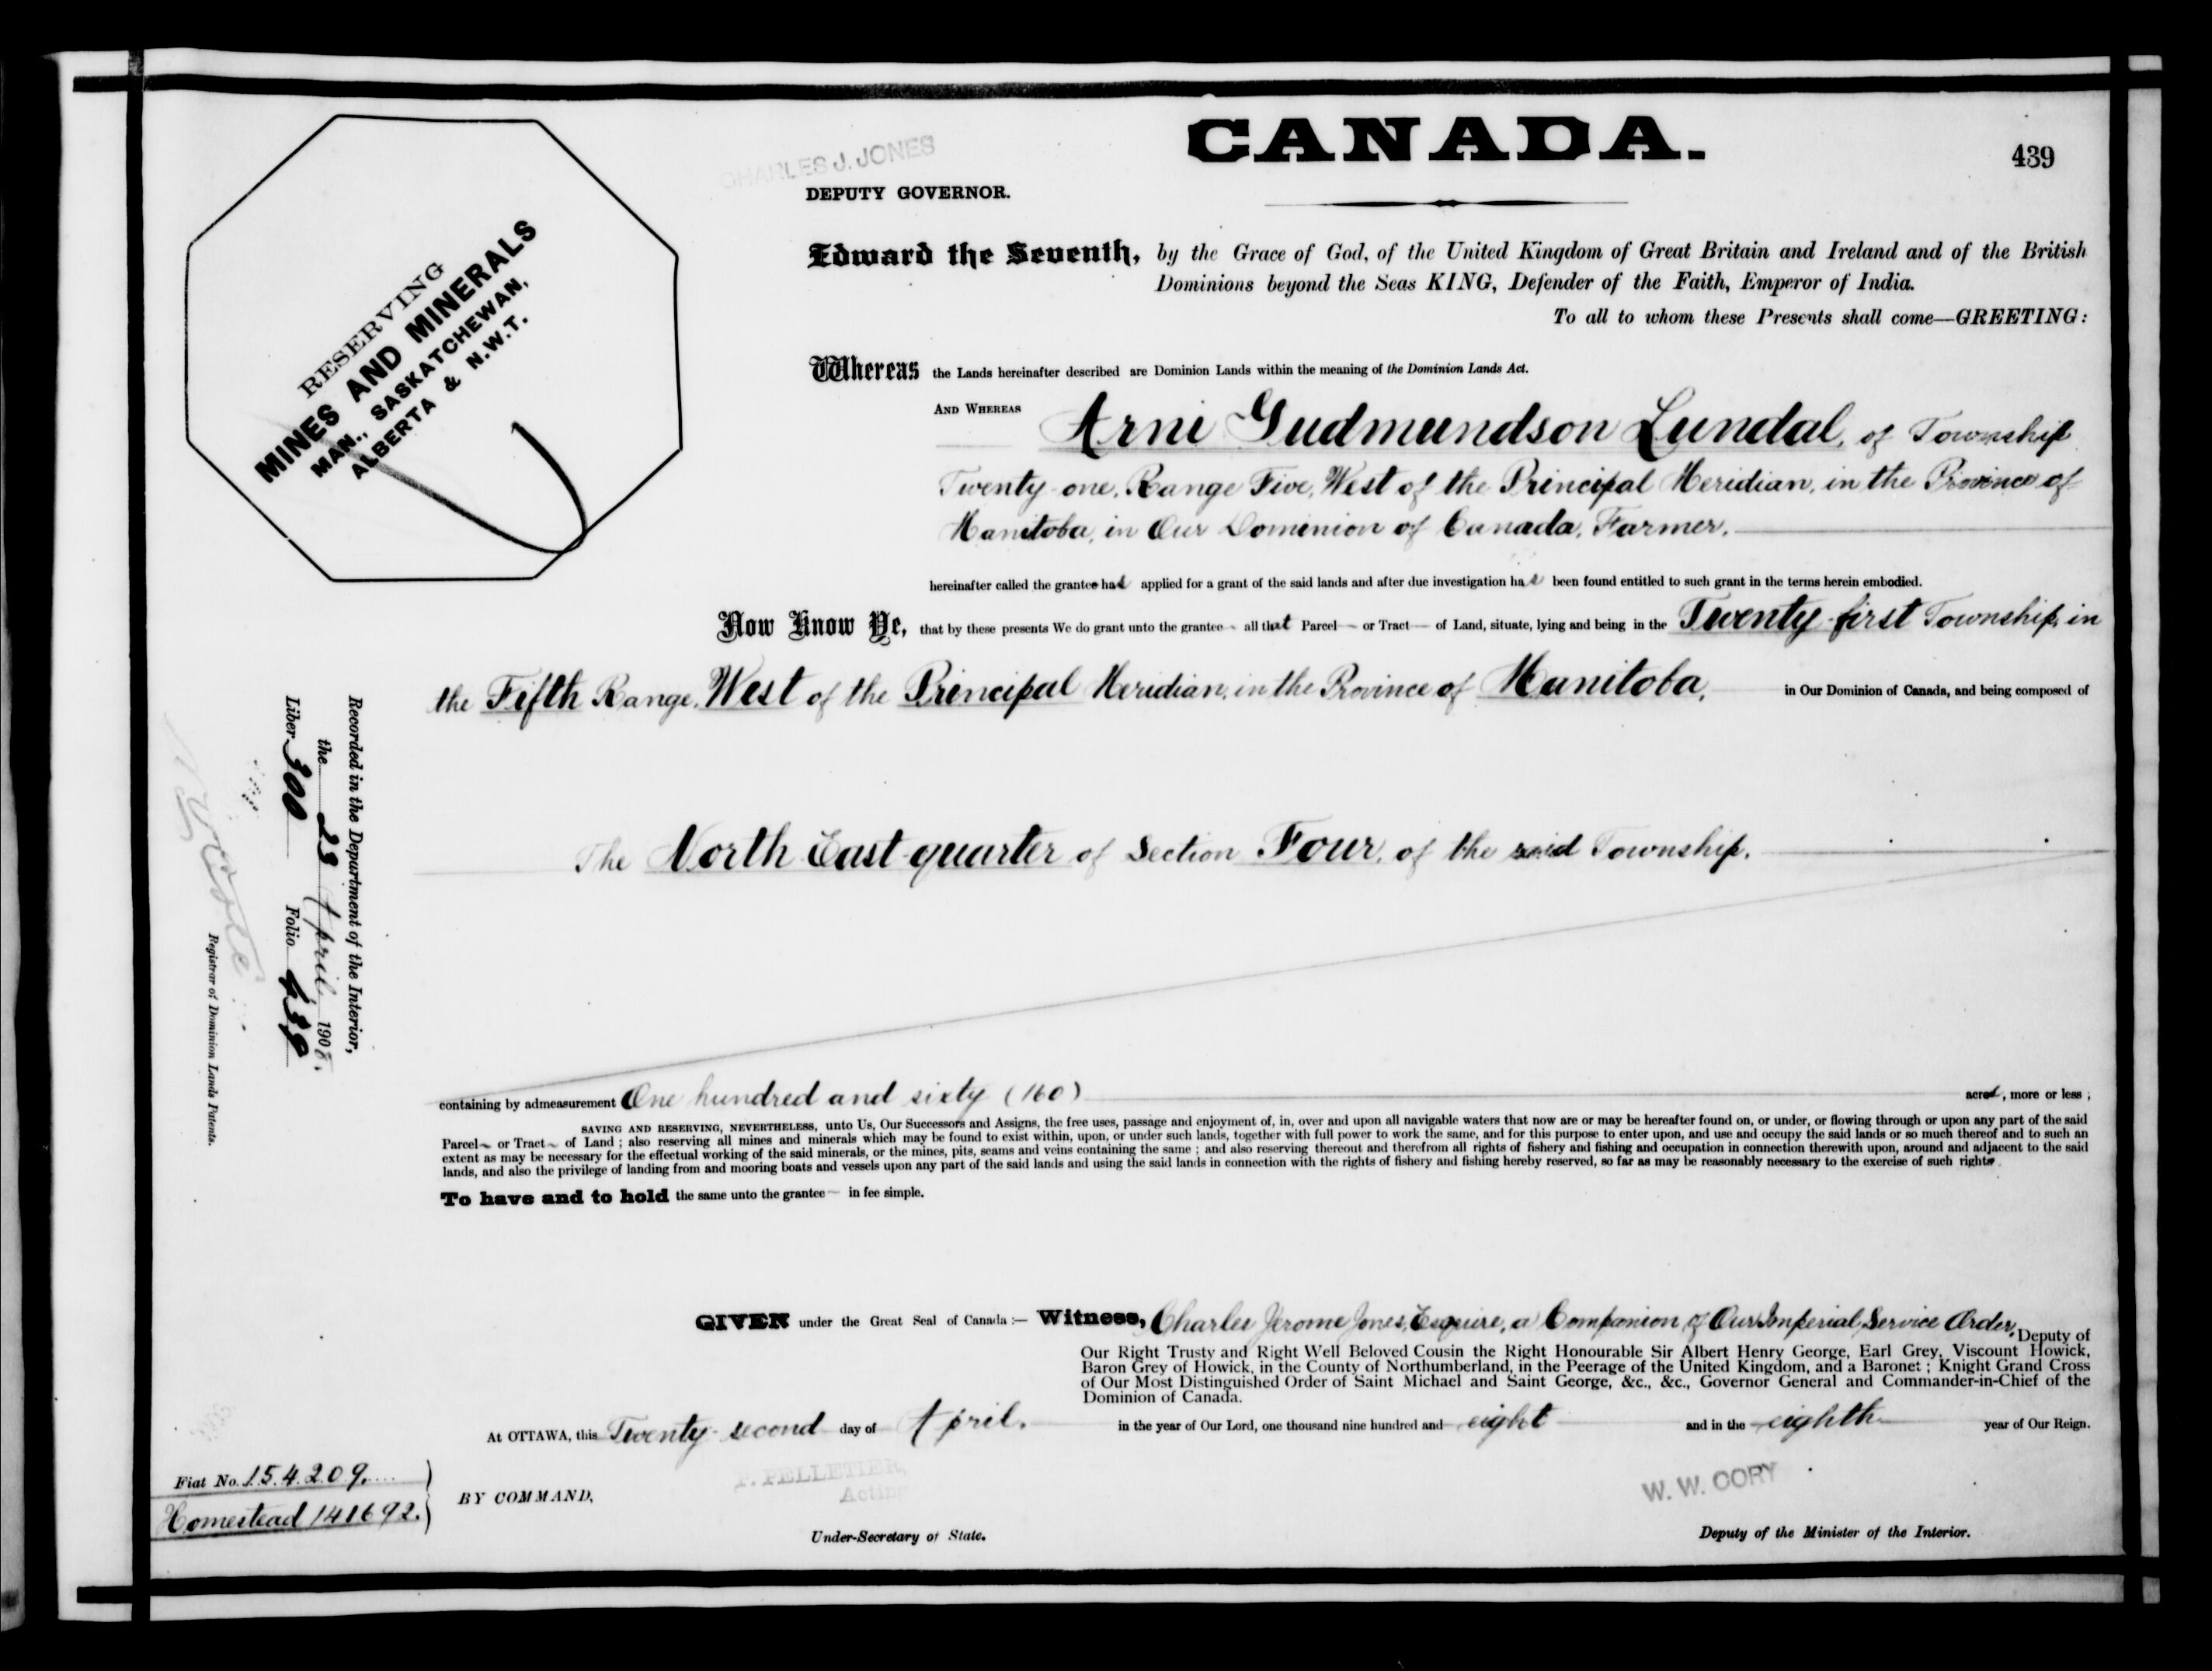 CANADA.
439
CHARLES J. JONES
DEPUTY GOVERNOR.
RESERVING
MINES AND MINERALS
MAN., SASKATCHEWAN,
ALBERTA & N.W.T.
Edward the Seventh, by the Grace of God, of the United Kingdom of Great Britain and Ireland and of the British
Dominions beyond the Seas KING, Defender of the Faith, Emperor of India.
To all to whom these Presents shall come—GREETING:
Whereas the Lands hereinafter described are Dominion Lands within the meaning of the Dominion Lands Act.
AND WHEREAS Arni Gudmundson Lundal, of Township
Twenty-one, Range Five, West of the Principal Meridian, in the Province of
Manitoba, in Our Dominion of Canada, Farmer.
hereinafter called the grantee has applied for a grant of the said lands and after due investigation has been found entitled to such grant in the terms herein embodied.
Now Know Ye, that by these presents We do grant unto the grantee all that Parcel or Tract of Land, situate, lying and being in the Twenty-first Township, in
the Fifth Range, West of the Principal Meridian, in the Province of Manitoba, in Our Dominion of Canada, and being composed of
The North East quarter of Section Four, of the said Township.
containing by admeasurement One hundred and sixty (160) acres, more or less ;
SAVING AND RESERVING, NEVERTHELESS, unto Us, Our Successors and Assigns, the free uses, passage and enjoyment of, in, over and upon all navigable waters that now are or may be hereafter found on, or under, or flowing through or upon any part of the said
Parcel or Tract of Land ; also reserving all mines and minerals which may be found to exist within, upon, or under such lands, together with full power to work the same, and for this purpose to enter upon, and use and occupy the said lands or so much thereof and to such an
extent as may be necessary for the effectual working of the said minerals, or the mines, pits, seams and veins containing the same ; and also reserving thereout and therefrom all rights of fishery and fishing and occupation in connection therewith upon, around and adjacent to the said
lands, and also the privilege of landing from and mooring boats and vessels upon any part of the said lands and using the said lands in connection with the rights of fishery and fishing hereby reserved, so far as may be reasonably necessary to the exercise of such rights.
To have and to hold the same unto the grantee in fee simple.
GIVEN under the Great Seal of Canada :— Witness, Charles Jerome Jones, Esquire, a Companion of Our Imperial Service Order, Deputy of
Our Right Trusty and Right Well Beloved Cousin the Right Honourable Sir Albert Henry George, Earl Grey, Viscount Howick,
Baron Grey of Howick, in the County of Northumberland, in the Peerage of the United Kingdom, and a Baronet ; Knight Grand Cross
of Our Most Distinguished Order of Saint Michael and Saint George, &c., &c., Governor General and Commander-in-Chief of the
Dominion of Canada.
At OTTAWA, this Twenty-second day of April. in the year of Our Lord, one thousand nine hundred and eight and in the eighth year of Our Reign.
BY COMMAND,
P. PELLETIER,
Acting
Under-Secretary of State.
W. W. CORY
Deputy of the Minister of the Interior.
Fiat No. 154209.
Homestead 141692.
Recorded in the Department of the Interior,
the 23 April 1908,
Liber 300 Folio 439
Registrar of Dominion Lands Patents.